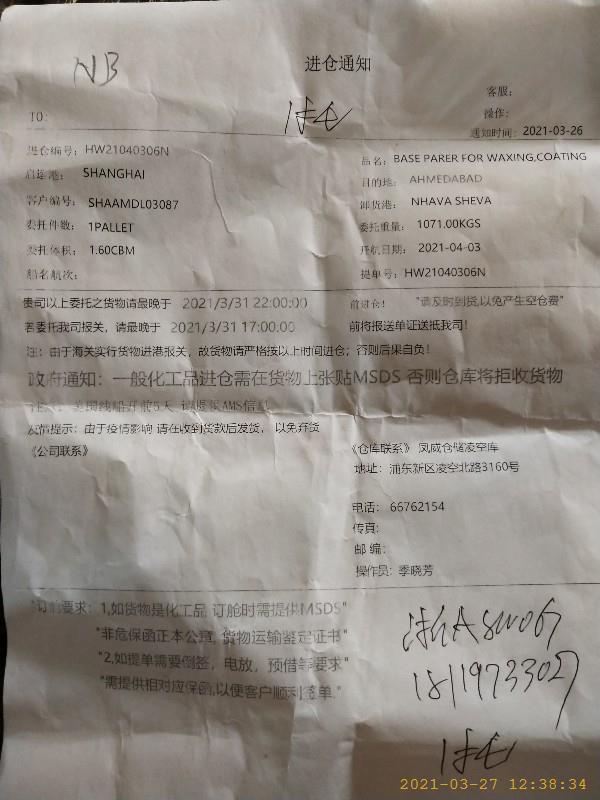 NB
进仓通知
客服：
TO:
操作：
通知时间：2021-03-26
进仓编号：HW21040306N
品名：BASE PARER FOR WAXING,COATING
启运港：SHANGHAI
目的地：AHMEDABAD
客户编号：SHAAMDL03087
卸货港：NHAVA SHEVA
委托件数：1PALLET
委托重量：1071.00KGS
委托体积：1.60CBM
开航日期：2021-04-03
船名航次：
提单号：HW21040306N
贵司以上委托之货物请最晚于 2021/3/31 22:00:00 前进仓！ "请及时到货,以免产生空仓费"
若委托我司报关，请最晚于 2021/3/31 17:00:00 前将报送单证送抵我司！
注：由于海关实行货物进港报关，故货物请严格按以上时间进仓；否则后果自负！
政府通知：一般化工品进仓需在货物上张贴MSDS 否则仓库将拒收货物
美国线船开前5天 AMS信息
友情提示：由于疫情影响 请在收到货款后发货，以免弃货
《公司联系》
《仓库联系》 凤威仓储凌空库
地址：浦东新区凌空北路3160号
电话：66762154
传真：
邮编：
操作员：季晓芳
"订舱要求：1,如货物是化工品,订舱时需提供MSDS"
"非危保函正本公章, 货物运输鉴定证书"
"2,如提单需要倒签，电放，预借等要求"
"需提供相对应保函,以便客户顺利签单."
18119733027
2021-03-27 12:38:34